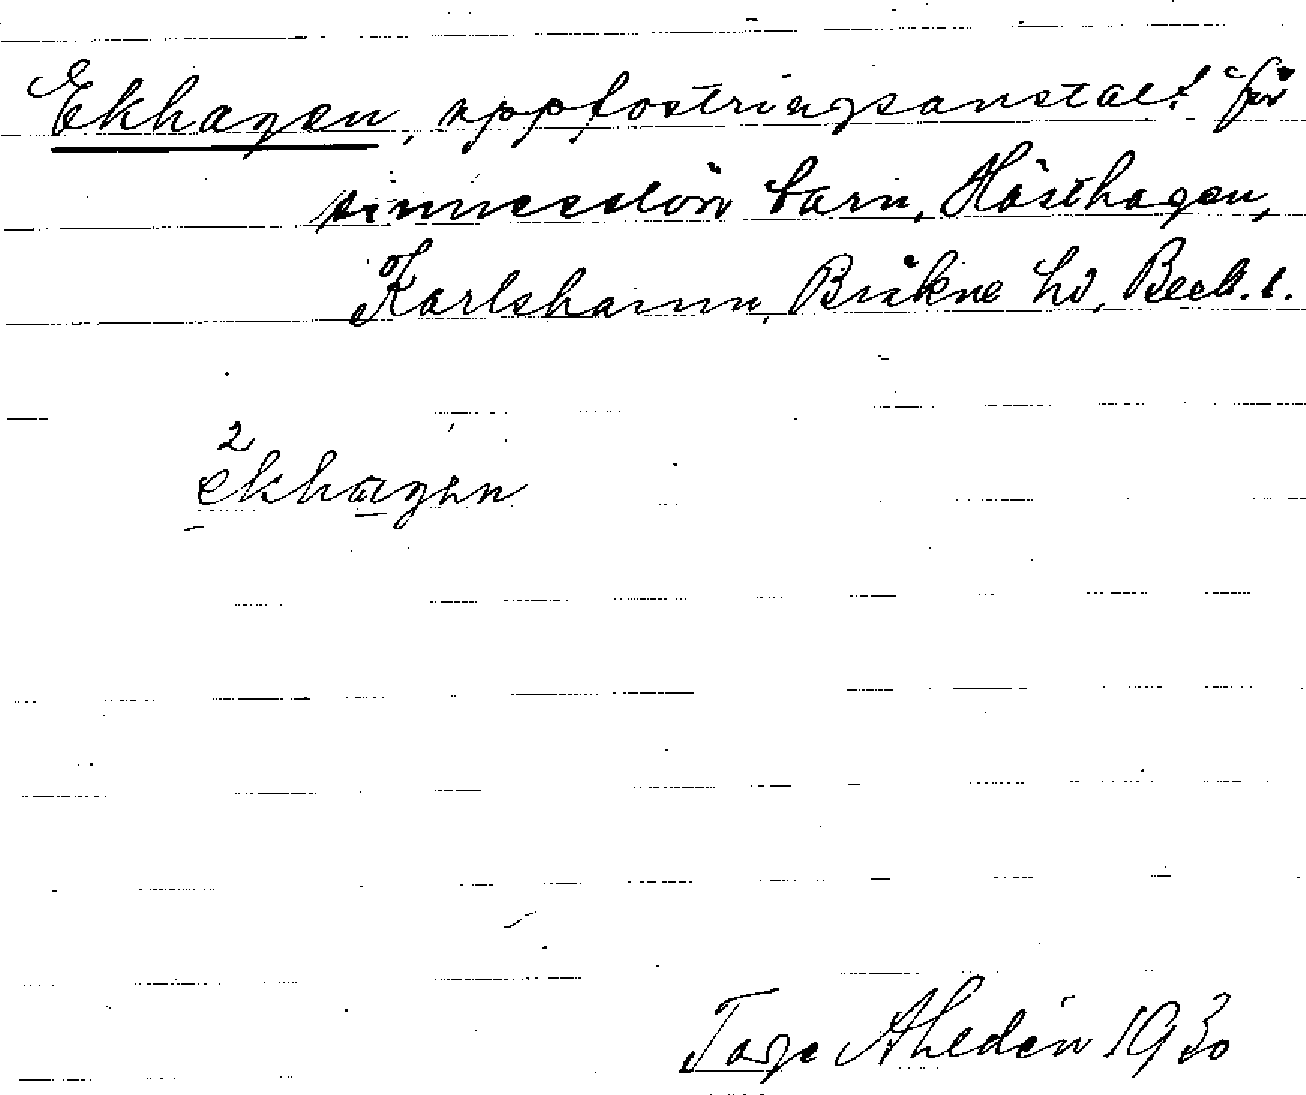 Ekhagen, uppfostringsanstalt för
sinnesslöa barn, Hästhagen,
Karlshamn, Bräkne hd, Blek. l.
2
ekhagen
Tage Ahldén 1930